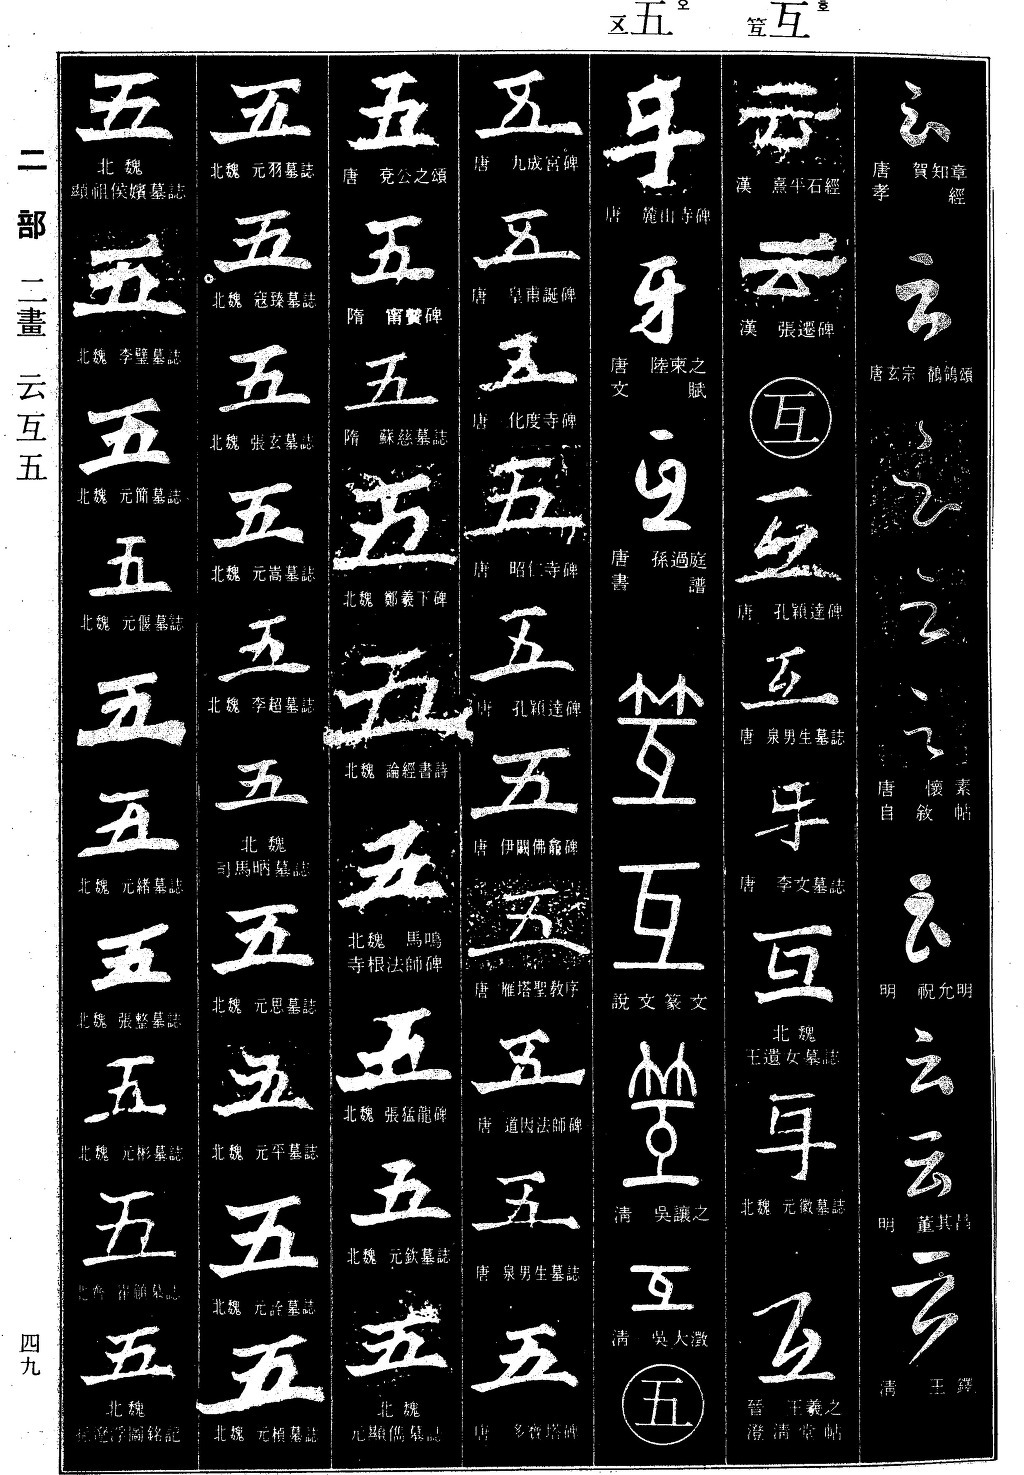 互 호
笠
五 오
㐅
二部 二畫 云互五
四九
云
唐 賀知章
孝 經
云
唐玄宗 鶺鴒頌
云
云
云
唐 懷素
自敘帖
云
明 祝允明
云
云
明 董其昌
云
清 王鐸
云
漢 熹平石經
云
漢 張遷碑
互
互
唐 孔穎達碑
互
唐 泉男生墓誌
互
唐 李文墓誌
互
北魏
王遺女墓誌
互
北魏 元徽墓誌
互
晉 王羲之
澄清堂帖
互
唐 麓山寺碑
互
唐 陸柬之
文賦
互
唐 孫過庭
書譜
互
說文篆文
清 吳讓之
互
清 吳大澂
五
五
唐 九成宮碑
五
唐 皇甫誕碑
五
唐 化度寺碑
五
唐 昭仁寺碑
五
唐 孔穎達碑
五
唐 伊闕佛龕碑
五
唐 雁塔聖教序
五
唐 道因法師碑
五
唐 泉男生墓誌
五
唐 多寶塔碑
五
唐 兗公之頌
五
隋 甯贙碑
五
隋 蘇慈墓誌
五
北魏 鄭羲下碑
五
北魏 論經書詩
五
北魏 馬鳴
寺根法師碑
五
北魏 張猛龍碑
五
北魏 元欽墓誌
五
北魏
元顯儁墓誌
五
北魏 元羽墓誌
五
北魏 寇臻墓誌
五
北魏 張玄墓誌
五
北魏 元嵩墓誌
五
北魏 李超墓誌
五
北魏
司馬昞墓誌
五
北魏 元思墓誌
五
北魏 元平墓誌
五
北魏 元詮墓誌
五
北魏 元楨墓誌
五
北魏
顯祖侯嬪墓誌
五
北魏 李璧墓誌
五
北魏 元簡墓誌
五
北魏 元偃墓誌
五
五
北魏 元緒墓誌
五
北魏 張整墓誌
五
北魏 元彬墓誌
五
北齊 墓誌
五
北魏
浮圖銘記